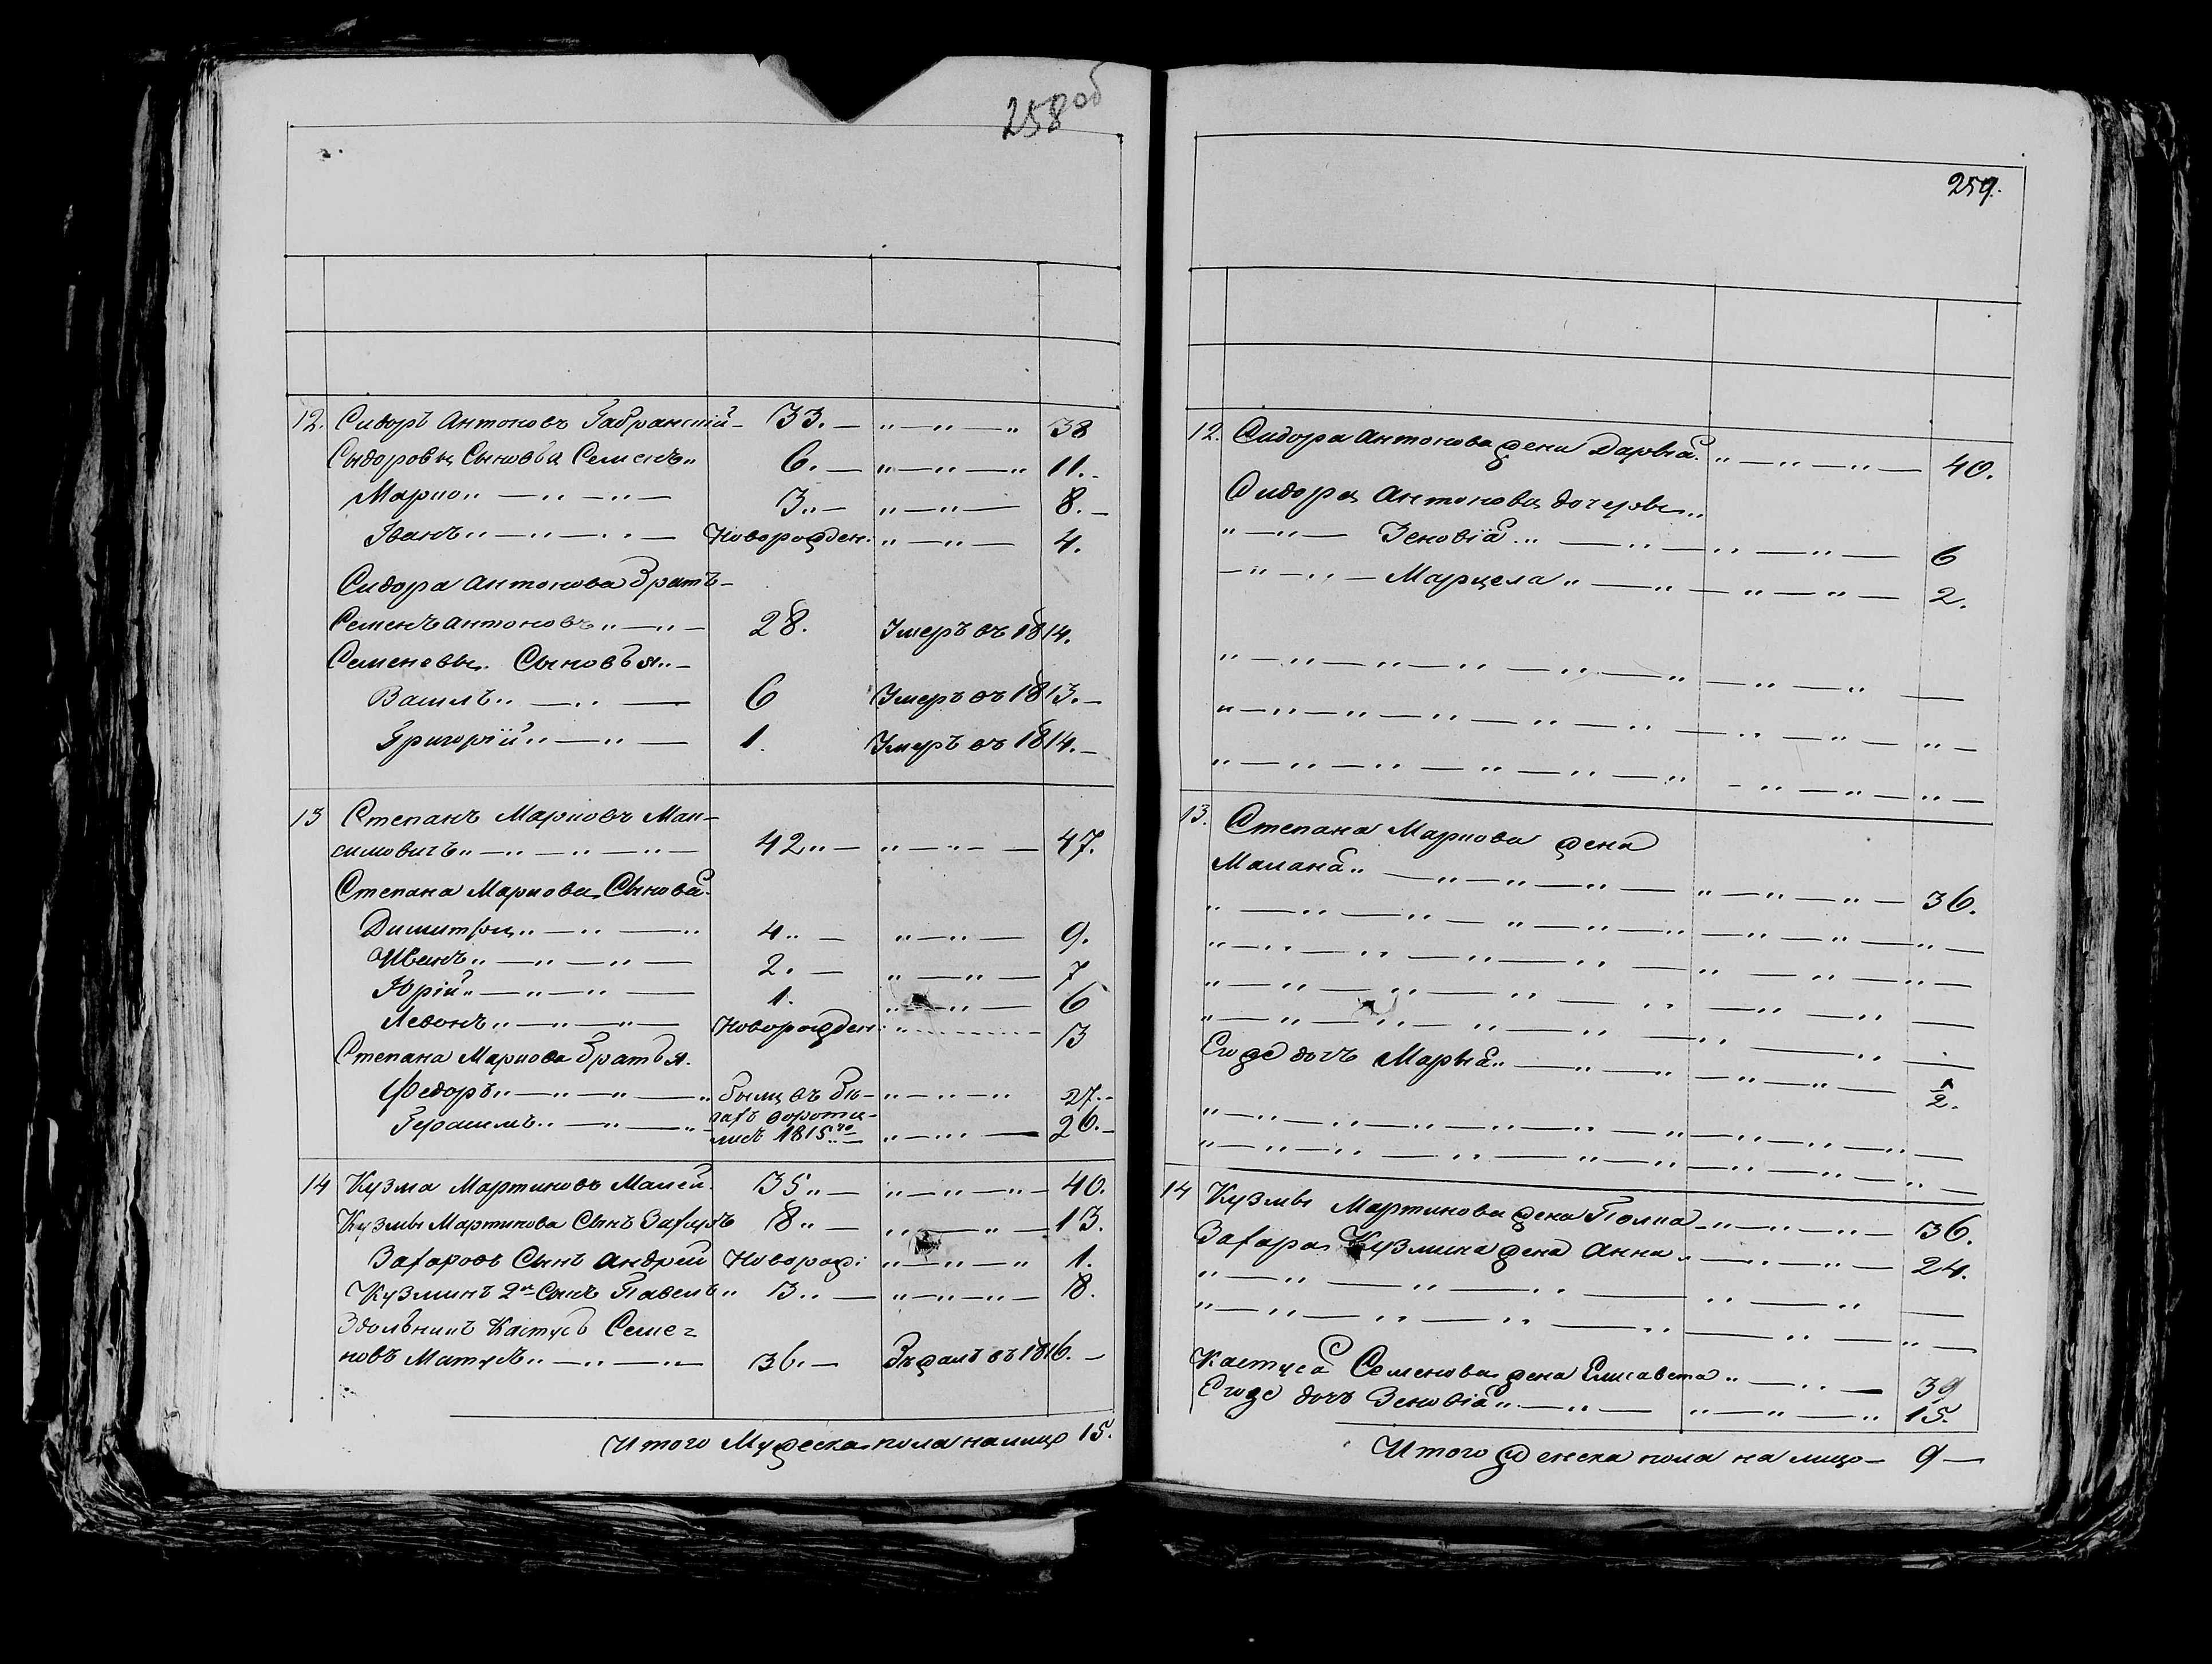 258об
12. Сидоръ Антоновъ Габранскій 33. 38
Сыдоровы Сыновья Семенъ 6. 11.
Марко 3 8.
Іванъ Новорожден: 4.
Сидора Антонова Братъ
Семенъ Антоновъ 28. Умеръ въ 1814.
Семеневы Сыновья
Василь 6 Умеръ въ 1813.
Григорій 1. Умеръ въ 1814.
13 Степанъ Марковъ Мак-
симовичъ 42 47.
Степана Маркова Сыновья
Димитры 4 9.
Иванъ 2. 7
Юрій 1. 6
Левонъ Новорожден: 3
Степана Маркова Братья
Федоръ были въ бѣ- 27.
Герасимъ гахъ вороти-
лись 1815го 26.
14 Кузма Мартиновъ Малей 35 40.
Кузмы Мартинова Сынъ Захаръ 8 13.
Захаровъ Сынъ Андрей Новорожд: 1.
Кузминъ 2й Сынъ Павелъ 3 8.
Здольникъ Кастусь Семе=
новъ Матусъ 36. Бѣжалъ въ 1816.
Итого Мужеска пола налицо 15.
259.
12. Сидора Антонова жена Дарья 40.
Сидора Антонова дочеры
Зеновія 6
Марцела 2.
13. Степана Маркова жена
Малана 36.
Егоже дочъ Марья 1/2.
14 Кузмы Мартинова жена Полка 36.
Захара Кузмина жена Анна 24.
Кастуся Семенова жена Елисавета 39
Егоже дочъ Зеновія 15.
Итого женска пола на лицо 9